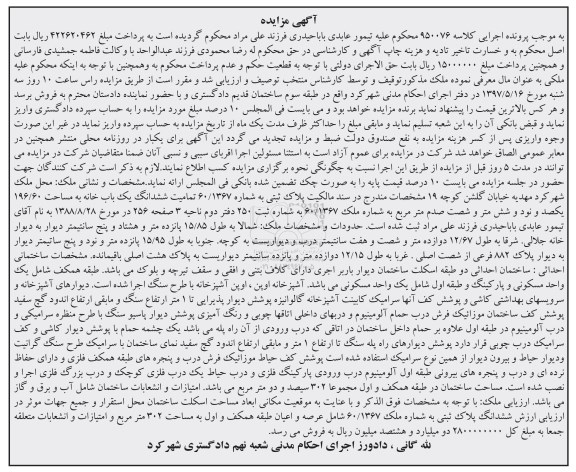 آگهی مزایده
به موجب پرونده اجرایی کلاسه ۹۵۰۰۷۶ محکوم علیه تیمور عابدی باباحیدری فرزند علی مراد محکوم گردیده است به پرداخت مبلغ ۴۲۲۶۲۰۴۶۲ ریال بابت
اصل محکوم به و خسارت تاخیر تادیه و هزینه چاپ آگهی و کارشناسی در حق محکوم له رضا محمودی فرزند عبدالواحد با وکالت فاطمه جمشیدی فارسانی
و همچنین پرداخت مبلغ ۱۵۰۰۰۰۰۰ ریال بابت حق الاجرای دولتی با توجه به قطعیت حکم و عدم پرداخت محکوم به وهمچنین با توجه به اینکه محکوم علیه
ملکی به عنوان مال معرفی نموده ملک مذکورتوقیف و توسط کارشناس منتخب توصیف و ارزیابی شد و مقرر است از طریق مزایده راس ساعت ۱۰ روز سه
شنبه مورخ ۱۳۹۷/۵/۱۶ در دفتر اجرای احکام مدنی شهرکرد واقع در طبقه سوم ساختمان قدیم دادگستری و با حضور نماینده دادستان محترم به فروش برسد
و هر کس بالاترین قیمت را پیشنهاد نماید برنده مزایده خواهد بود و می بایست فی المجلس ۱۰ درصد مبلغ مورد مزایده را به حساب سپرده دادگستری واریز
نماید و قبض بانکی آن را به این شعبه تسلیم نماید و مابقی مبلغ را حداکثر ظرف مدت یک ماه از تاریخ مزایده به حساب سپرده واریز نماید در غیر این صورت
وجوه واریزی پس از کسر هزینه مزایده به نفع صندوق دولت ضبط و مزایده تجدید می گردد این آگهی برای یکبار در روزنامه محلی منتشر همچنین در
معابر عمومی الصاق خواهد شد شرکت در مزایده برای عموم آزاد است به استثنا مسئولین اجرا اقربای سببی و نسبی آنان ضمنا متقاضیان شرکت در مزایده می
توانند در مدت ۵ روز قبل از مزایده از طریق این اجرا نسبت به چگونگی نحوه برگزاری مزایده کسب اطلاع نمایند.لازم به ذکر است شرکت کنندگان جهت
حضور در جلسه مزایده می بایست ۱۰ درصد قیمت پایه را به صورت چک تضمین شده بانکی فی المجلس ارائه نماید.مشخصات و نشانی ملک: محل ملک
شهرکرد مهدیه خیابان گلشن کوچه ۱۹ مشخصات مندرج در سند مالکیت پلاک ثبتی به شماره ۶۰/۱۳۶۷ تمامیت ششدانگ یک باب خانه به مساحت ۱۹۶/۶۰
یکصد و نود و شش متر و شصت صدم متر مربع به شماره ملک ۶۰/۱۳۶۷ به شماره ثبت ۲۵۰ دفتر دوم ناحیه ۳ صفحه ۲۵۶ در مورخ ۱۳۸۸/۸/۲۸ به نام آقای
تیمور عابدی باباحیدری فرزند علی مراد ثبت شده است. حدودات و مشخصات ملک: شمالا به طول ۱۵/۸۵ پانزده متر و هشتاد و پنج سانتیمتر به دیوار
خانه جلالی. شرقا به طول ۱۲/۶۷ دوازده متر و شصت و هفت سانتیمتر درب و دیواریست به کوچه. جنوبا به طول ۱۵/۹۵ پانزده متر و نود و پنج سانتیمتر دیوار
به دیوار پلاک ۸۸۲ فرعی از شصت اصلی . غربا به طول ۱۲/۱۵ دوازده متر و پانزده سانتیمتر دیواریست به پلاک هشت اصلی باقیمانده. مشخصات ساختمانی
احداثی : ساختمان احداثی دو طبقه اسکلت ساختمان دیوار باربر اجری دارای کلاف بتنی و افقی و سقف تیرچه و بلوک می باشد. طبقه همکف شامل یک
واحد مسکونی و پارکینگ و طبقه اول شامل یک واحد مسکونی می باشد. آشپزخانه اوپن ، اوپن آشپزخانه با طرح سنگ اجرا شده است. دیوارهای آشپزخانه و
سرویسهای بهداشتی کاشی و پوشش کف آنها سرامیک کابینت آشپزخانه گالوانیزه پوشش دیوار پذیرایی تا ۱ متر ارتفاع سنگ و مابقی ارتفاع اندود گچ سفید
پوشش کف ساختمان موزائیک فرش درب حمام آلومینیوم و دربهای داخلی اتاقها چوبی و رنگ آمیزی پوشش دیوار پاسیو سنگ با طرح منظره سرامیکی و
درب آلومینیوم در طبقه اول علاوه بر حمام داخل ساختمان در اتاقی که درب ورودی از آن راه پله می باشد یک چشمه حمام با پوشش دیوار کاشی و کف
سرامیک درب چوبی قرار دارد پوشش دیوارهای راه پله سنگ تا ارتفاع ۱ متر و مابقی ارتفاع اندود گچ سفید نمای ساختمان با سرامیک طرح سنگ گرانیت
ودیوار حیاط و بیرون دیوار از همین نوع سرامیک استفاده شده است پوشش کف حیاط موزائیک فرش درب و پنجره های طبقه همکف فلزی و دارای حفاظ
نرده ای و درب و پنجره های بیرونی طبقه اول آلومینیوم درب ورودی پارکینگ فلزی و درب حیاط یک درب فلزی کوچک و درب بزرگ فلزی اجرا و
نصب شده است. مساحت ساختمان در طبقه همکف و اول مجموعا ۳۰۲ سیصد و دو متر مربع می باشد. امتیازات و انشعابات ساختمان شامل آب و برق و گاز
می باشد. ارزیابی ملک: با توجه به مشخصات فوق الذکر و با عنایت به موقعیت مکانی ابعاد مساحت اسکلت ساختمان محل استقرار و جمیع جهات موثر در
ارزیابی ارزش ششدانگ پلاک ثبتی به شماره ملک ۶۰/۱۳۶۷ شامل عرصه و اعیان طبقه همکف و اول به مساحت ۳۰۲ متر مربع و امتیازات و انشعابات متعلقه
جمعا به مبلغ کل ۲۸۰۰۰۰۰۰۰۰ دو میلیارد و هشتصد میلیون ریال به فروش می رسد.
لله گانی ، دادورز اجرای احکام مدنی شعبه نهم دادگستری شهر کرد